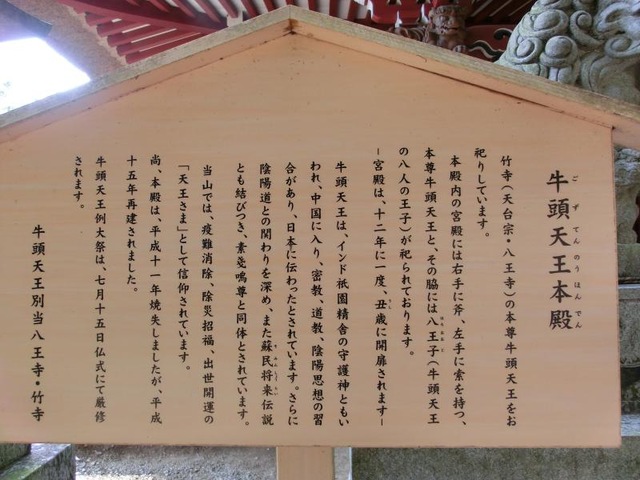 牛頭天王本殿
ごずてんのうほんでん
竹寺(天台宗・八王寺)の本尊牛頭天王をお
祀りしています。
本殿内の宮殿には右手に斧、左手に索を持つ、
本尊牛頭天王と、その脇には八王子(牛頭天王
の八人の王子)が祀られております。
−宮殿は、十二年に一度、丑歳に開扉されます−
牛頭天王は、インド祇園精舎の守護神ともい
われ、中国に入り、密教、道教、陰陽思想の習
合があり、日本に伝わったとされています。さらに
陰陽道との関わりを深め、また蘇民将来伝説
とも結びつき、素戔嗚尊と同体とされています。
当山では、疫難消除、除災招福、出世開運の
「天王さま」として信仰されています。
尚、本殿は、平成十一年焼失しましたが、平成
十五年再建されました。
牛頭天王例大祭は、七月十五日仏式にて厳修
されます。
牛頭天王別当八王寺・竹寺